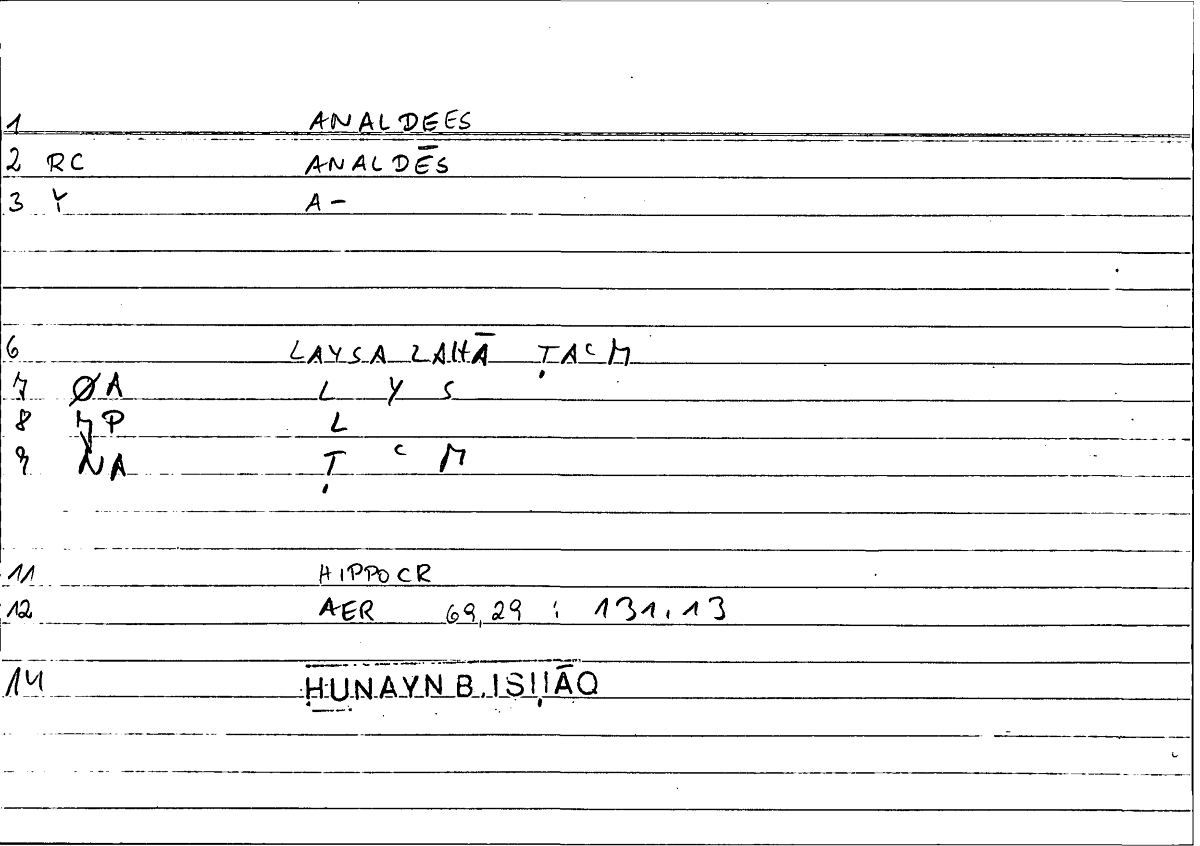 1 ANALDEES
2 RC ANALDĒS
3 Y A-
6 LAYSA LAHĀ ṬAᶜM
7 ØA L Y S
8 MP L
9 NA Ṭ ᶜ M
11 HIPPOCR
12 AER 69,29 : 131,13
14 ḤUNAYN B. ISḤĀQ